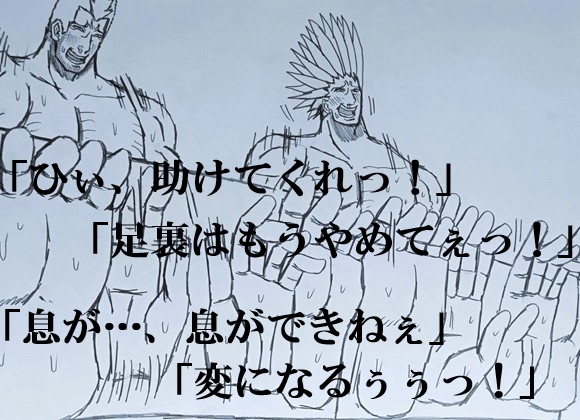 「ひぃ、助けてくれっ！」
「足裏はもうやめてぇっ！」
「息が…、息ができねぇ」
「変になるぅぅっ！」